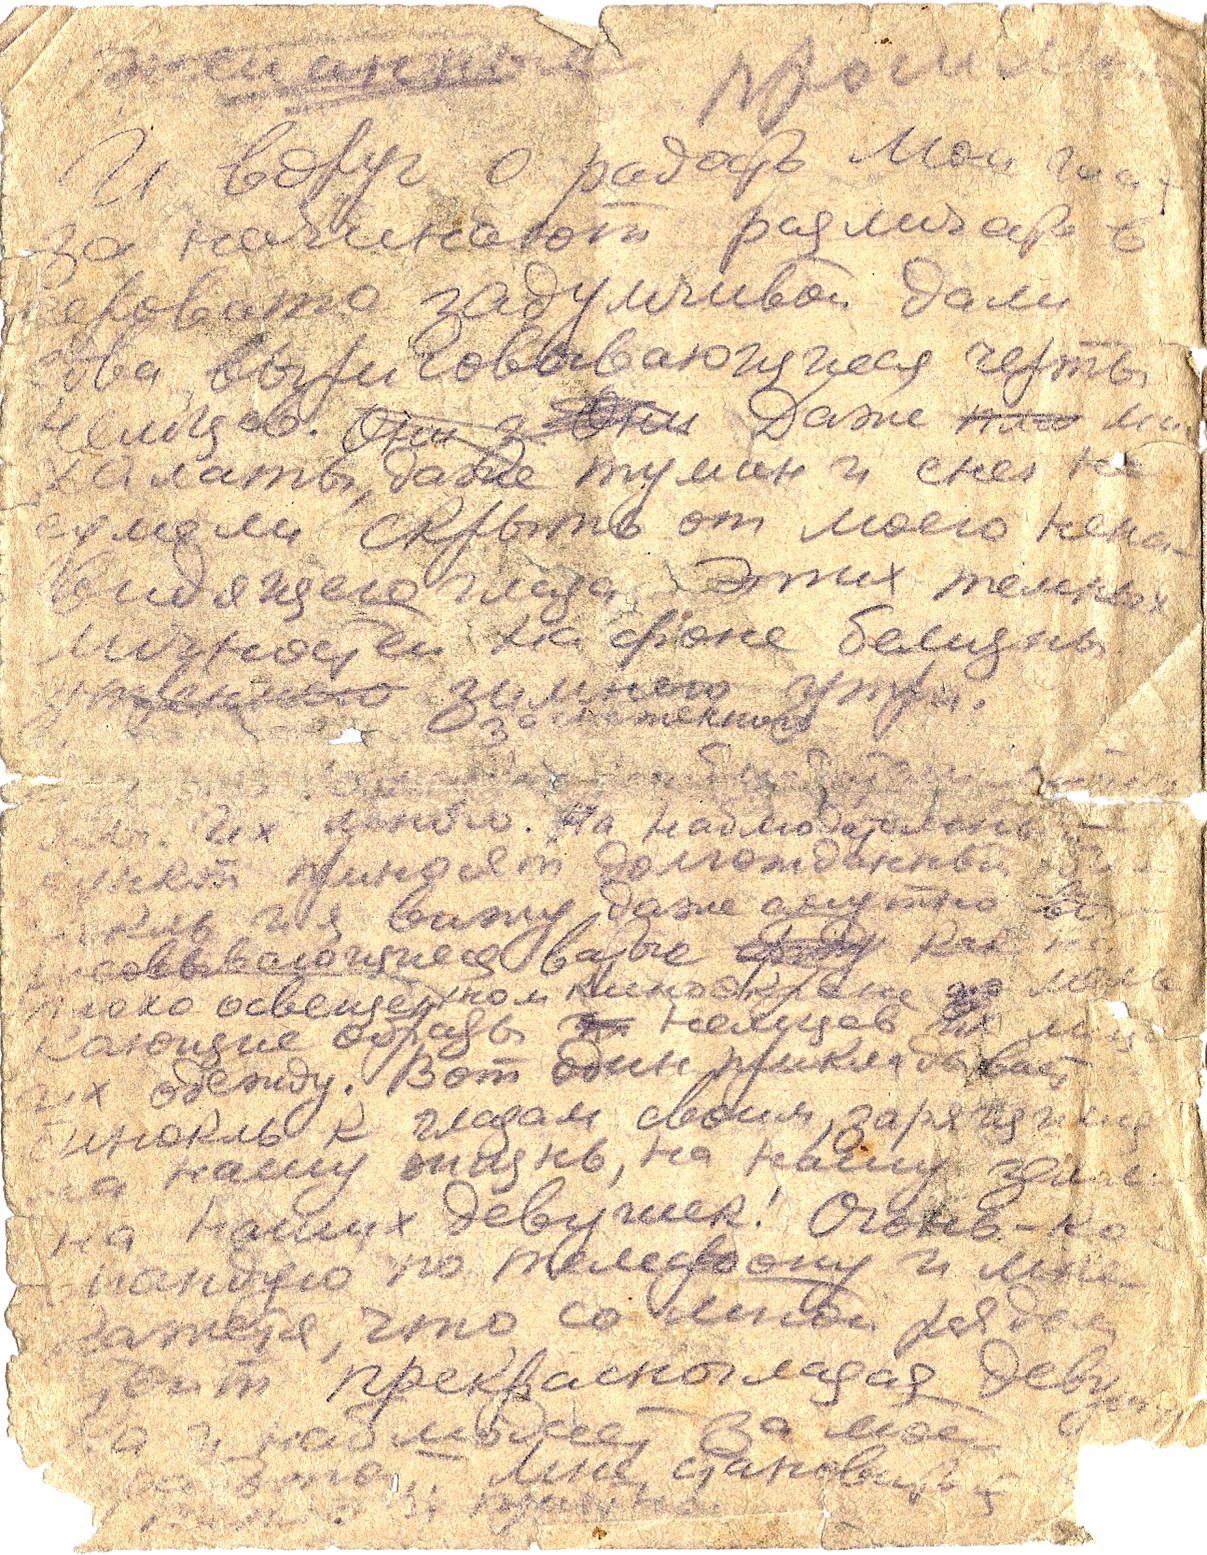 И вдруг о радость мои гла-
за начинают различать в
серовато задумчивой дали
едва вырисовывающиеся черты
немцев. Они з Они Даже
халаты, даже туман и снег не
сумели скрыть от моего нена-
видящего глаза этих темных
личностей на фоне белизны
зимнего утра.
заснеженного
Их много. На наблюдательный
пункт приносят долгожданный би-
нокль и я вижу даже смутно
вырисовывающиеся как на
плохо освещенном киноэкране
кающие образы немцев их лица
их одежду. Вот один прикладывает
бинокль к глазам своим, зарящимся
на нашу жизнь, на нашу землю
на наших девушек! Огонь-ко-
мандую по телефону и мне
кажется, что со мной рядом
стоит прекрасноглазая девуш-
ка и наблюдает за мое
мне становится